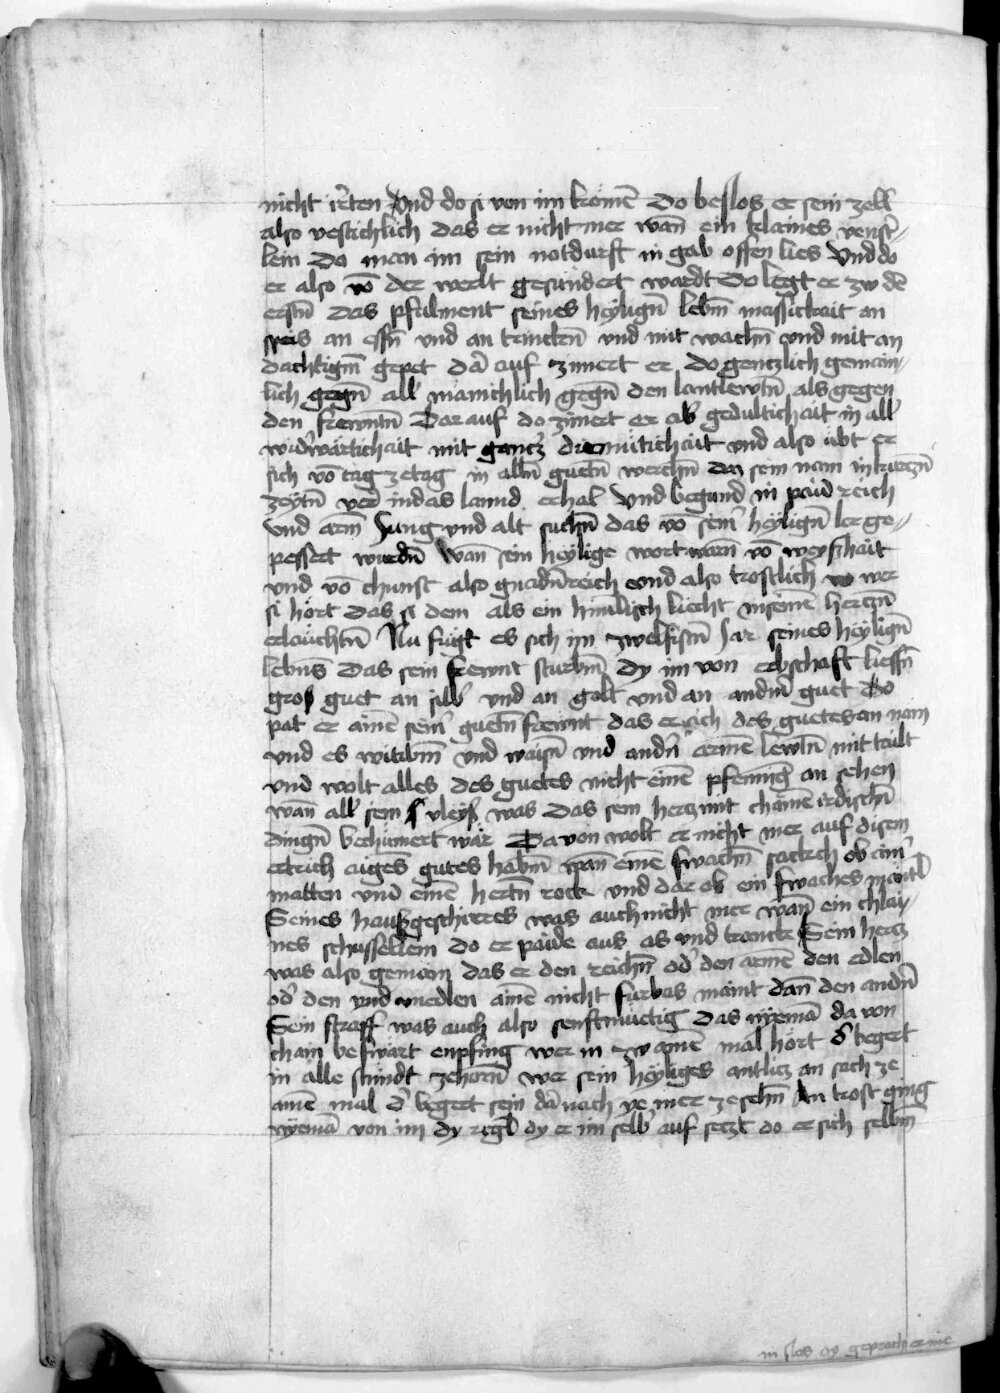 nicht irˀten Vnd do si von im kōmē Do beslos er sein zell
also vestichlich das er nicht mer wan̄ ein klaines venst˜=
lein do man im sein notdurft in gab offen lies Vnd do
er also vō der werlt gesundert wardt Do legt er zw dē
erstn̄ Das pfulment seines heylign̄ lebm̄ massickait an
speis an essn̄ vnd an trinckn̄ vnd mit wachn̄ vnd mit an
dachtigm̄ gepet dā auf zimert er do genczlich gemain=
lich gegn̄ all mānichlich gegn̄ den lantlewtn̄ als gegen
den frewntn̄ Dar auf do zimert er ab˜ gedultichait in all˜
wid˜wārtichait mit gancz˜ diemuͤtichait vnd also uͤbt er
sich vō tag ze tag in alln̄ guetn̄ werchn̄ das sein nam in kurczn̄
zeytn̄ verˀ in das lannd erhal Vnd begund in paid˜ reich
vnd arm Jung vnd alt suchn̄ das vō sein˜ heylign̄ ler ge=
pessert wurdn̄ Wan̄ sein heylige wort warn̄ vō weyshait
vnd vō chunst also gnadn̄reich vnd also trostlich wer
si hort das si dem als ein himlisch liecht in seinē herczn̄
erlauchtn̄ Nu fuͤgt es sich im zwelfistn̄ Jar seines heylign̄
lebn̄s Das sein frewnt sturbm̄ dy im von erbschaft liessn̄
gros guet an silb˜ vnd an golt vnd an andm̄ guet Do
pat er ainē sein˜ guetn̄ frewnt das er sich des guetes an nam
vnd es witibm̄ vnd waisn̄ vnd andn̄ armē lewtn̄ mit tailt
vnd wolt alles des guetes nicht einē pfenning an sehen
wan̄ all sein vleys was das sein hercz mit chainē irdischn̄
dingn̄ bechumert wār Da von wolt er nicht mer auf disem
ertrich aigēs gutes habm̄ wan̄ einē swachn̄ sackch ob ain˜
matten vnd einē hertn̄ rock vnd dar ob ein swaches mantl
Seines hauszgeschirres was auch nicht mer wan̄ ein chlai=
nes schussellein do er paide aus as vnd tranck Sein hercz
was also gemain das er den reichn̄ od˜ den armē den edlen
od˜ den vnd vnedlen ainē nicht furbas maint dan̄ den andn̄
Sein straff was auch also senftmuͤetig das nyemā da von
chain beswārt enpfing wer in zw ainē mal hort d˜ begert
in alle stundt zehorn̄ wer sein heyliges antlicz an sach ze
ainē mal d˜ begert sein dā nach ye mer ze sehn̄ An trost ging
nyemā von im dy regl˜ dy er im selb˜ auf seczt do er sich selbm̄
in slos dy geprach er nie